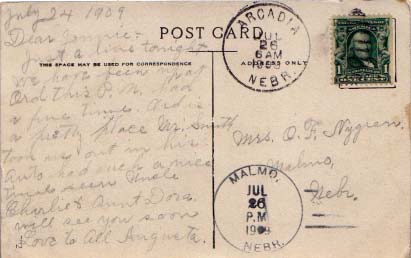 July 24 1909
Dear Jennie:-
Just a line tonight
We have been up at
Ord this P.M. had
a fine time. Ord is
a pretty place Mr. Smith
took us out in his
Auto had such a nice
time seen Uncle
Charlie & Aunt Dora.
will see you soon
Love to All Augusta.
POST CARD
THIS SPACE MAY BE USED FOR CORRESPONDENCE
ADDRESS ONLY
ARCADIA
JUL
26
6 AM
1909
NEBR.
Mrs. O. F. Nygren.
Malmo,
Nebr.
MALMO,
JUL
26
P.M
1909
NEBR.